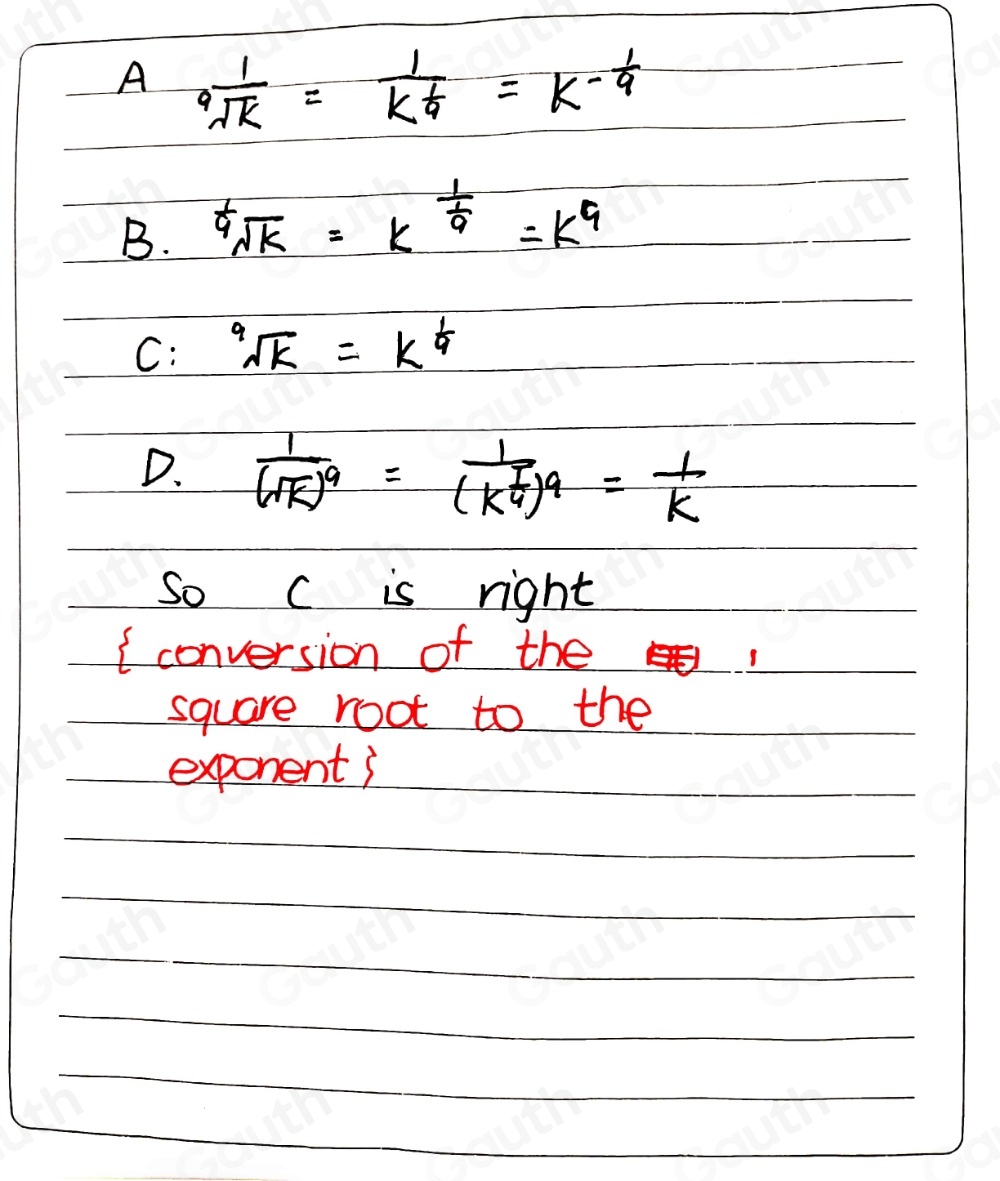 A 1/⁹√K = 1/K^(1/9) = K^(-1/9)
B. ^(1/9)√K = K^(1/(1/9)) = K⁹
C: ⁹√K = K^(1/9)
D. 1/(√K)⁹ = 1/(K^(1/9))⁹ = 1/K
So C is right
{ conversion of the
square root to the
exponent }